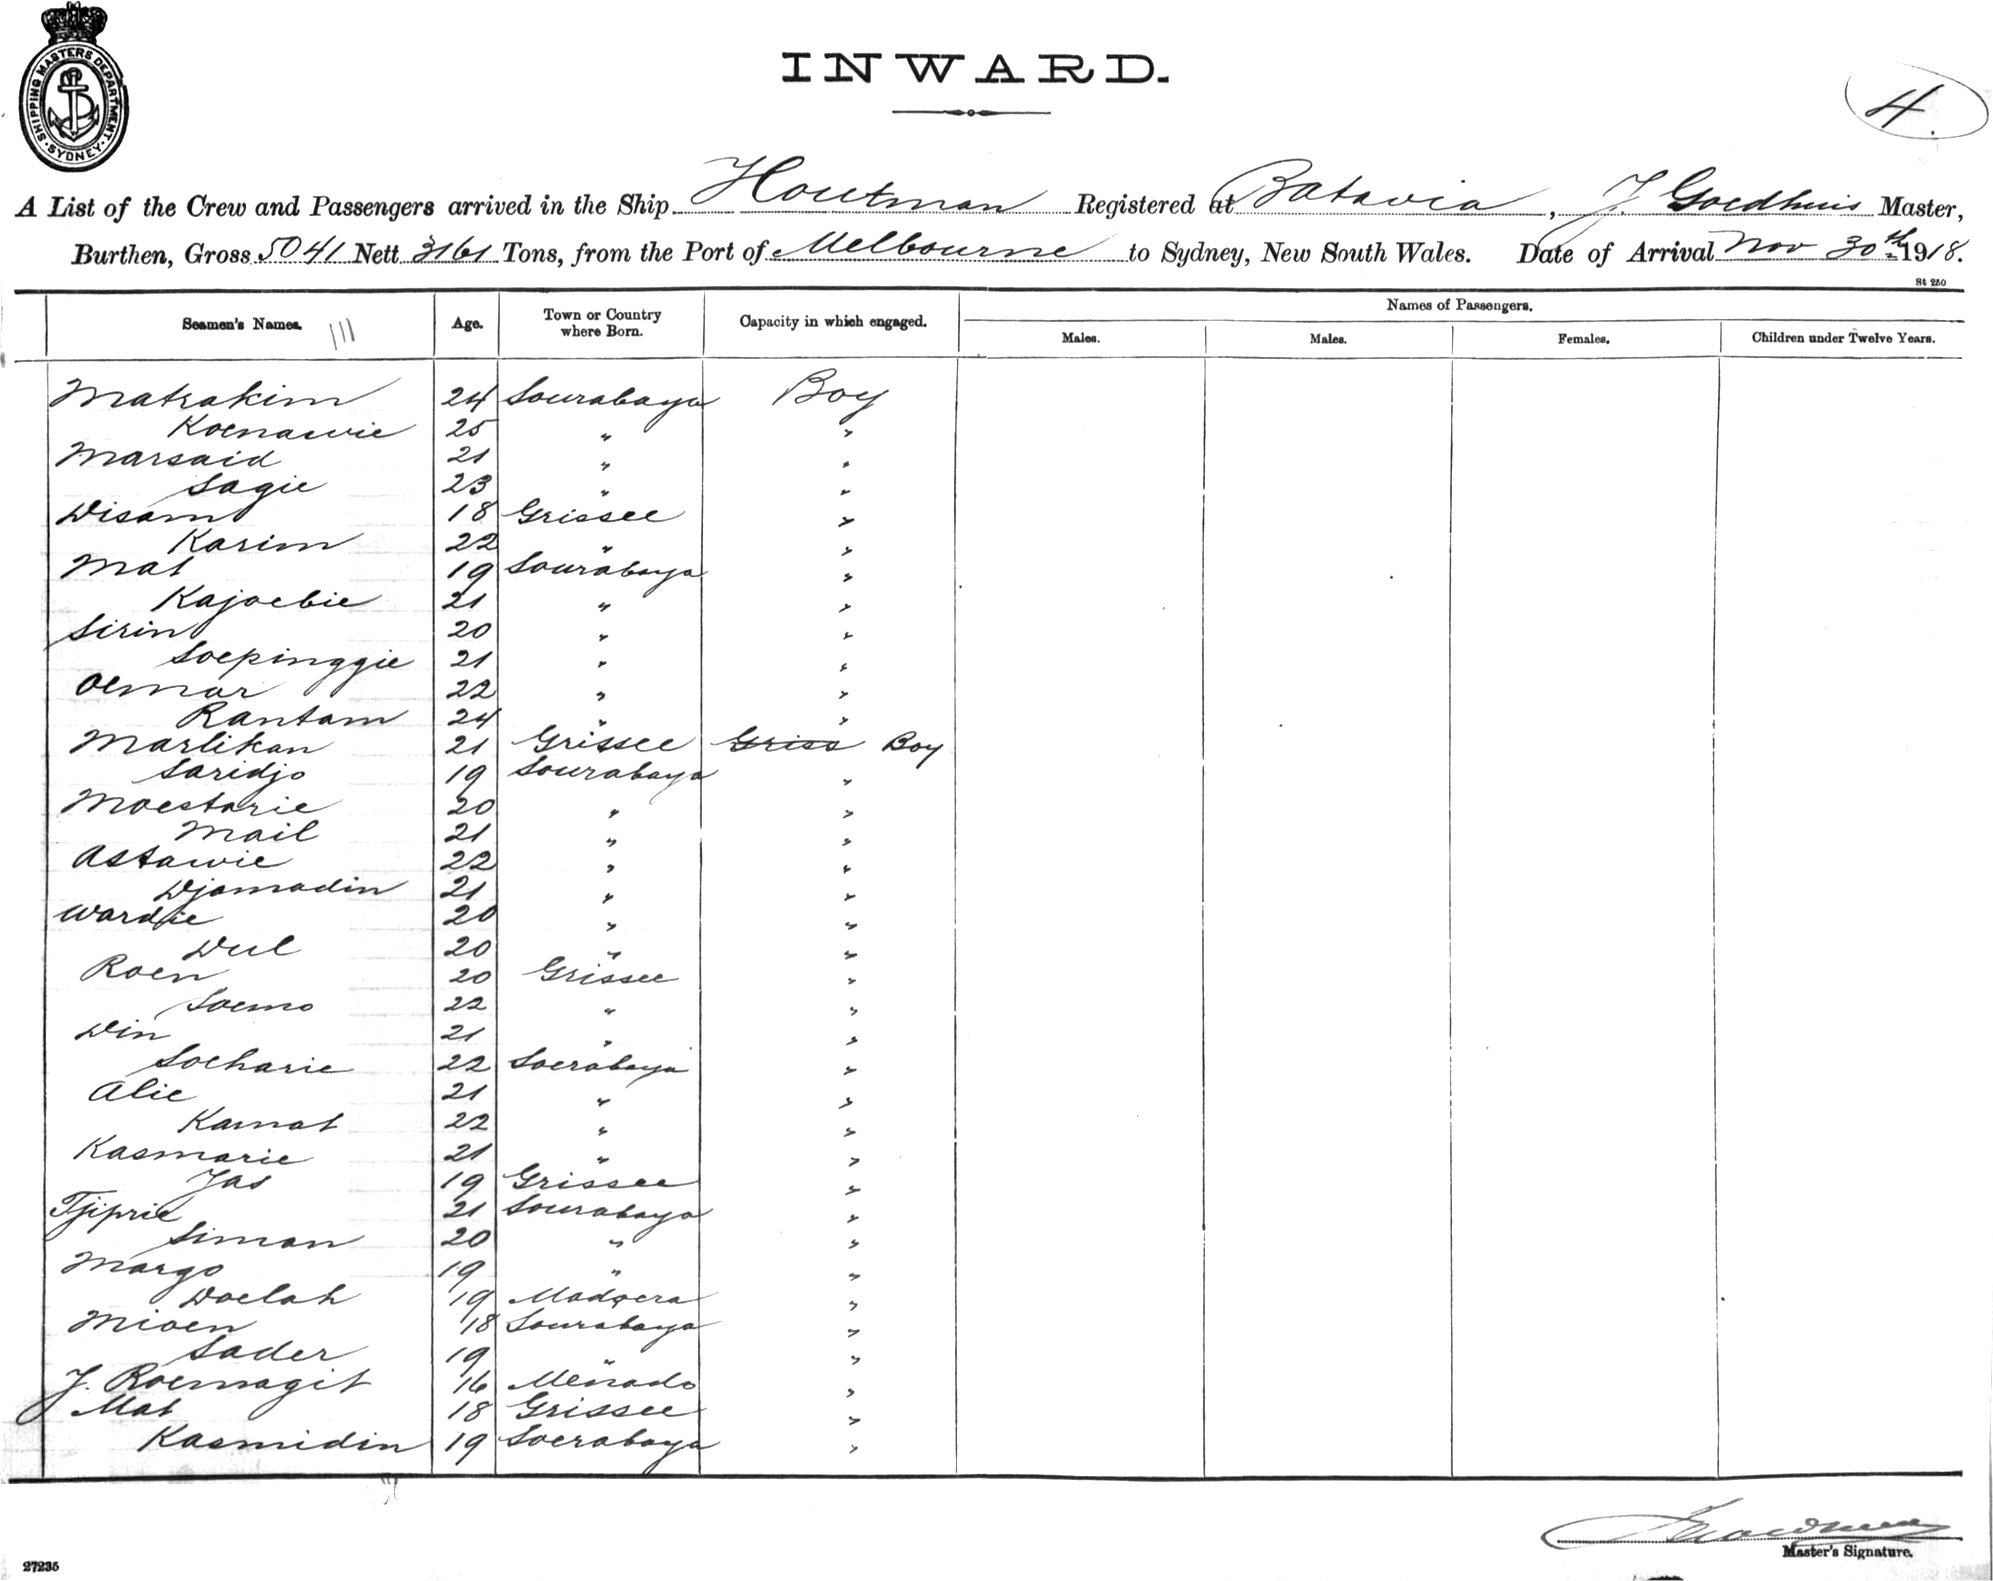 SHIPPING MASTERS DEPARTMENT
SYDNEY
INWARD.
4.
A List of the Crew and Passengers arrived in the Ship Houtman Registered at Batavia, J. Goedhuis Master,
Burthen, Gross 5041 Nett 3161 Tons, from the Port of Melbourne to Sydney, New South Wales. Date of Arrival Nov 30th 1918.
St 250
Seamen's Names. Age. Town or Country where Born. Capacity in which engaged. Names of Passengers.
Males. Males. Females. Children under Twelve Years.
Matrakim 24 Sourabaya Boy
Koenawie 25 " "
Marsaid 21 " "
Sagie 23 " "
Disam 18 Grissee "
Karim 22 " "
Mat 19 Sourabaya "
Kajoebie 21 " "
Sirin 20 " "
Soepinggie 21 " "
Oemar 22 " "
Rantam 24 " "
Marlikan 21 Grissee Griss Boy
Saridjo 19 Sourabaya "
Moestarie 20 " "
Mail 21 " "
Astawie 22 " "
Djamadin 21 " "
Wardie 20 " "
Dul 20 " "
Roen 20 Grissee "
Soemo 22 " "
Din 21 " "
Soeharie 22 Soerabaya "
Alie 21 " "
Kamat 22 " "
Kasmarie 21 " "
Jas 19 Grissee "
Tjiprie 21 Sourabaya "
Siman 20 " "
Margo 19 " "
Doelah 19 Madoera "
Mioen 18 Sourabaya "
Sader 19 " "
J. Roemagit 16 Menado "
Mat 18 Grissee "
Kasmidin 19 Soerabaya "
Master's Signature.
27235